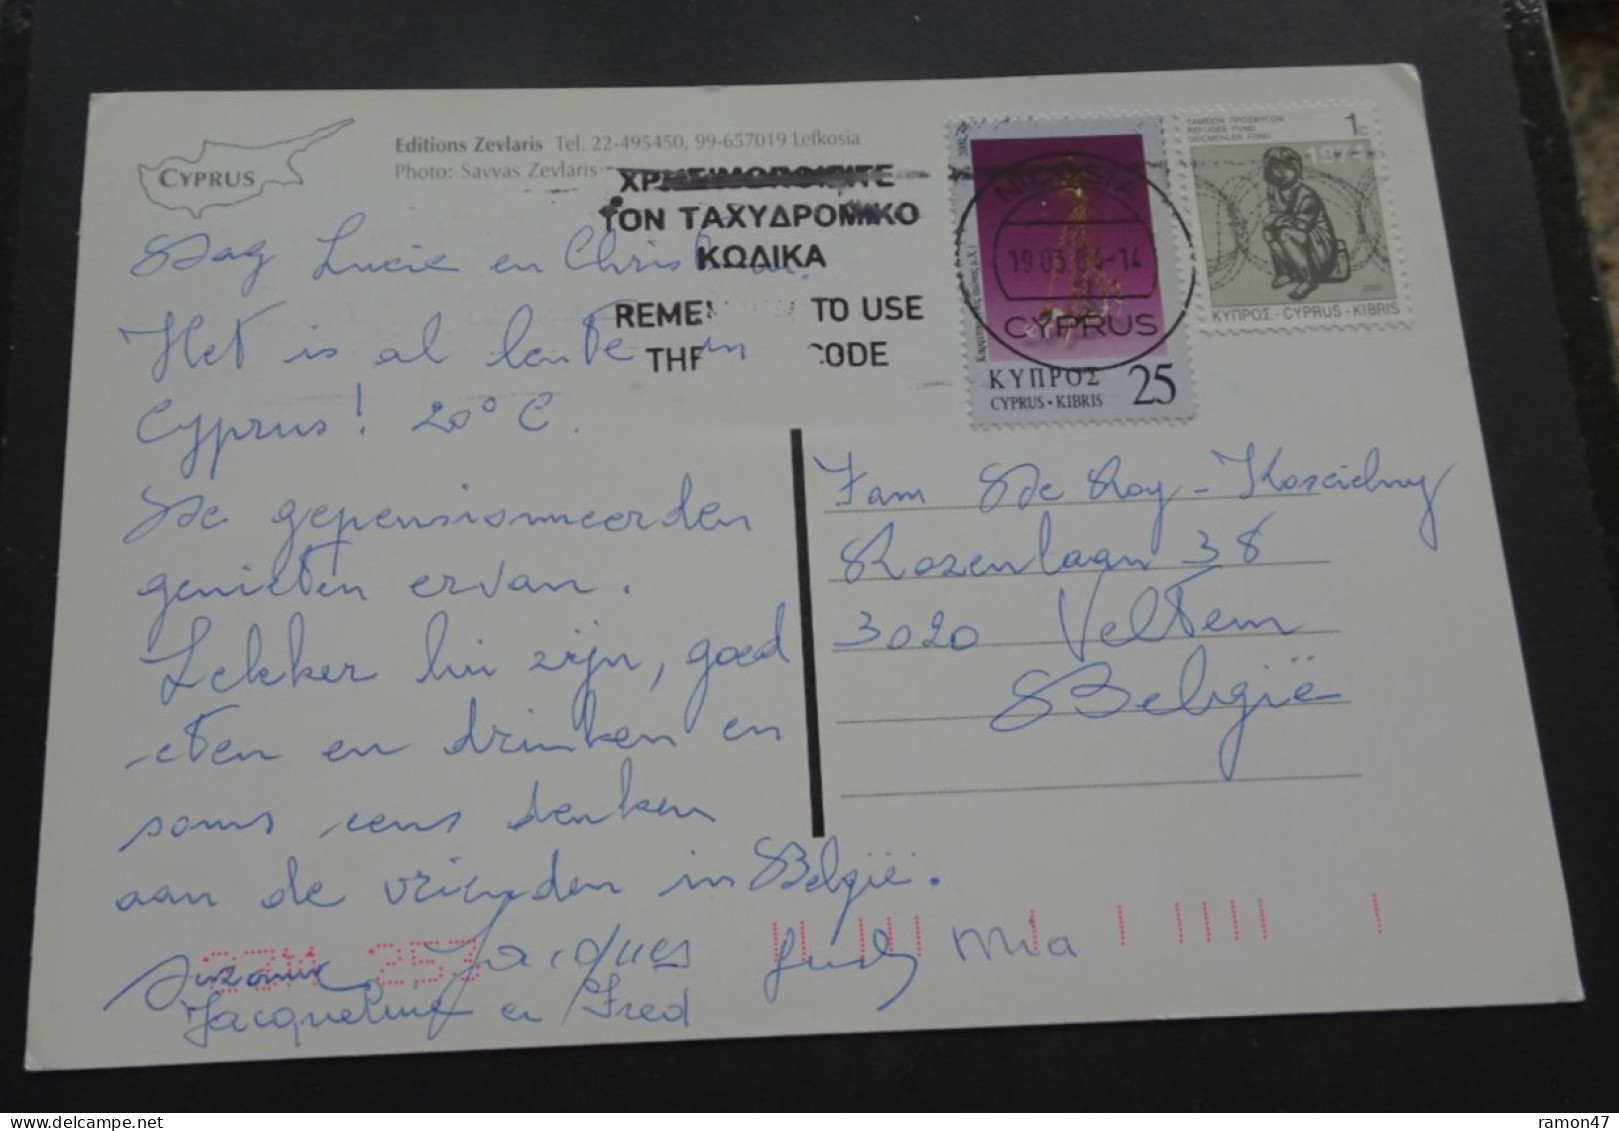 CYPRUS
Editions Zevlaris Tel. 22-495450, 99-657019 Lefkosia
Photo: Savvas Zevlaris
ΧΡΗΣΙΜΟΠΟΙΕΙΤΕ
ΤΟΝ ΤΑΧΥΔΡΟΜΙΚΟ
ΚΩΔΙΚΑ
REME TO USE
THE CODE
NICOSIA
19 03. 04-14
CYPRUS
ΚΥΠΡΟΣ 25
CYPRUS • KIBRIS
ΤΑΜΕΙΟΝ ΠΡΟΣΦΥΓΩΝ
REFUGEE FUND
GÖÇMENLER FONU
1c
1974
ΚΥΠΡΟΣ - CYPRUS - KIBRIS
Dag Lucie en Christian.
Het is al lente in
Cyprus! 20° C.
De gepensionneerden
genieten ervan.
Lekker lui zijn, goed
eten en drinken en
soms eens denken
aan de vrienden in België.
Suzanne Jacques Mia
Jacqueline en Fred
Fam De Roy - Koscielny
Rozenlaan 38
3020 Veltem
België
ramon47